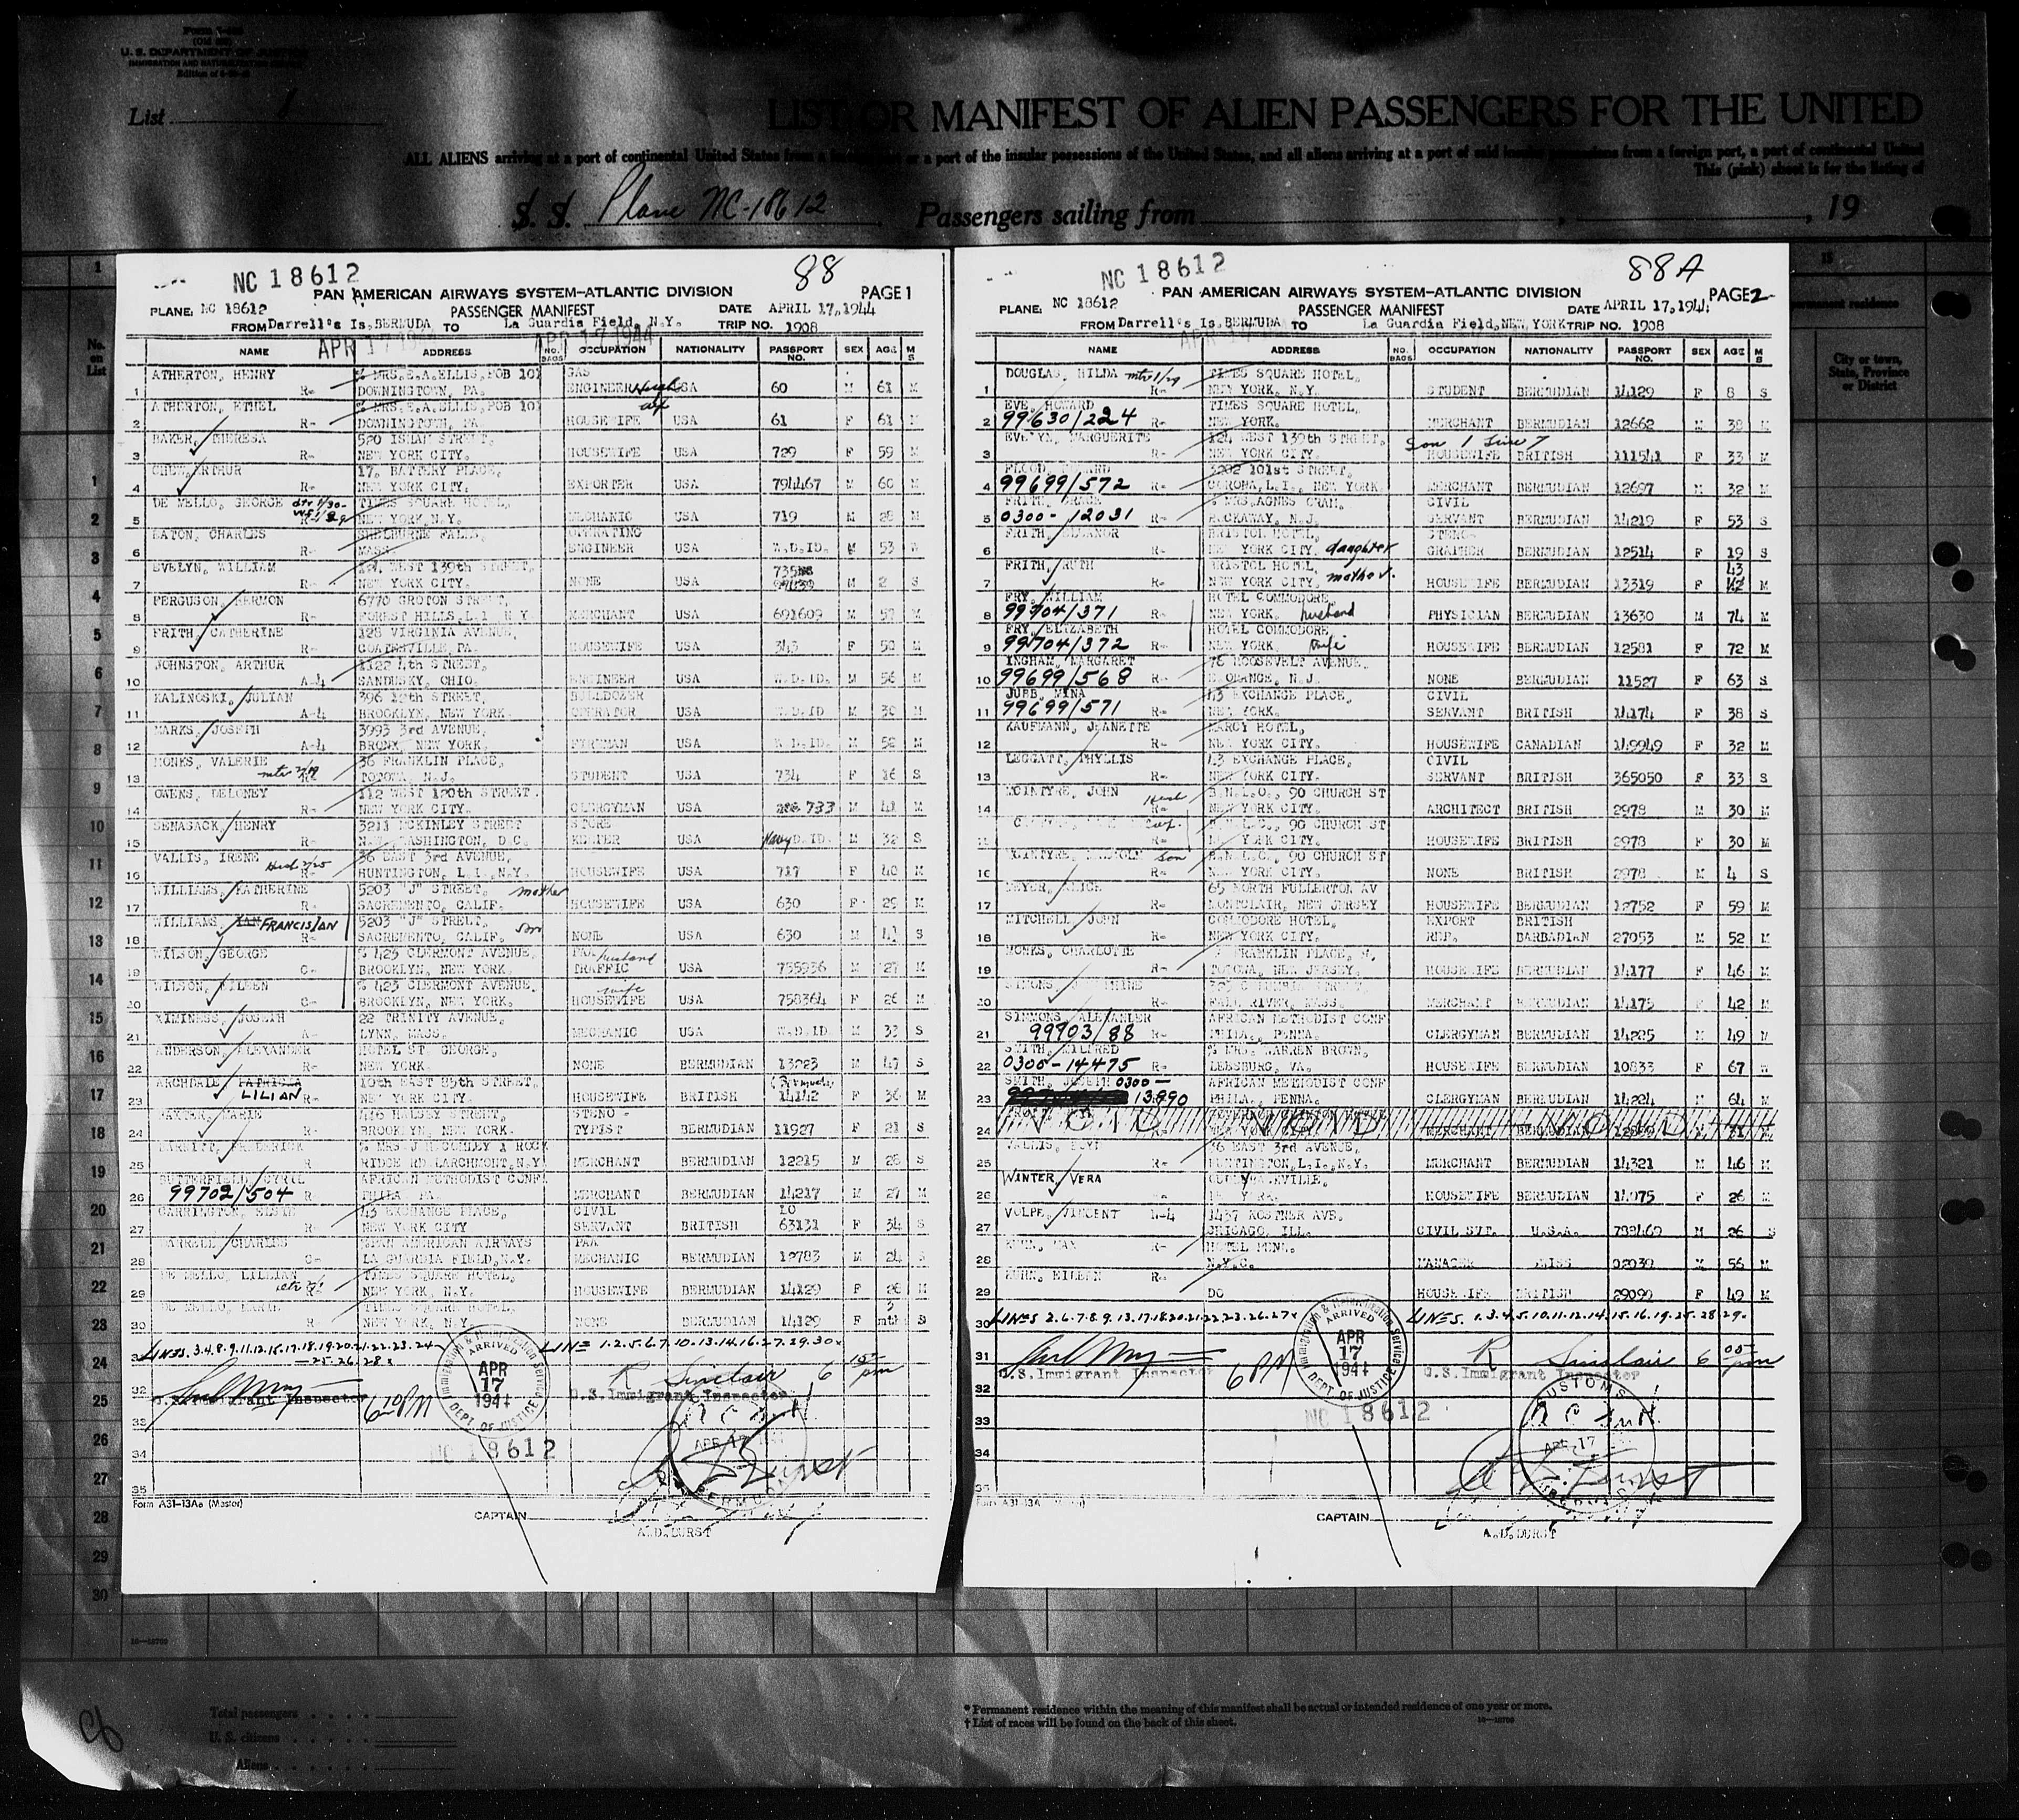 U. S. DEPARTMENT OF JUSTICE
IMMIGRATION AND NATURALIZATION SERVICE
List 1
LIST OR MANIFEST OF ALIEN PASSENGERS FOR THE UNITED
ALL ALIENS arriving at a port of continental United States from a or a port of the insular possessions of the United States, and all aliens arriving at a port of said insular possessions from a foreign port, a part of continental United
This (pink) sheet is for the listing of
S. S. Plane NC-18612 Passengers sailing from , , 19
No. on List
15
permanent residence
City or town, State, Province or District
NC 18612 88
PAN AMERICAN AIRWAYS SYSTEM—ATLANTIC DIVISION PAGE 1
PLANE: NC 18612 PASSENGER MANIFEST DATE APRIL 17,1944
FROM Darrell's Is,BERMUDA TO La Guardia Field, N.Y. TRIP NO. 1908
APR 17 1944 APR 17 1944
NAME ADDRESS NO. BAGS OCCUPATION NATIONALITY PASSPORT NO. SEX AGE M S
ATHERTON, HENRY % MRS.E.A.ELLIS,POB 101 GAS
1 R- DOWNINGTOWN, PA. ENGINEER USA 60 M 61 M
ATHERTON, ETHEL % MRS.E.A.ELLIS,POB 101
2 R- DOWNINGTOWN, PA HOUSEWIFE USA 61 F 61 M
BAKER, THERESA 520 ISHAM STREET,
3 R- NEW YORK CITY. HOUSEWIFE USA 729 F 59 M
CHEW, ARTHUR 17, BATTERY PLACE,
4 R- NEW YORK CITY. EXPORTER USA 794467 M 60 M
DE MELLO, GEORGE TIMES SQUARE HOTEL,
5 NEW YORK,N.Y. MECHANIC USA 719 M 28 M
EATON, CHARLES SHELBURNE FALLS, OPERATING
6 R- MASS. ENGINEER USA W.D.ID. M 53 W
EVELYN, WILLIAM 124 WEST 139th STREET, 735
7 R- NEW YORK CITY. NONE USA M 2 S
FERGUSON, HERMON 6770 GROTON STREET,
8 R- FOREST HILLS,L.I.,N.Y MERCHANT USA 691609 M 57 M
FRITH, CATHERINE 128 VIRGINIA AVENUE,
9 R- COATESVILLE,PA. HOUSEWIFE USA 343 F 50 M
JOHNSTON, ARTHUR 1122 4th STREET,
10 A-4 SANDUSKY, OHIO. ENGINEER USA W.D.ID. M 56 M
KALINOSKI, JULIAN 396 12th STREET, BULLDOZER
11 A-4 BROOKLYN, NEW YORK. OPERATOR USA W.D.ID M 30 M
MARKS, JOSEPH 3993 3rd AVENUE,
12 A-4 BRONX, NEW YORK. FIREMAN USA W.D.ID. M 58 M
MONES, VALERIE 36 FRANKLIN PLACE,
13 mtr 2/19 R- TOTOWA, N.J. STUDENT USA 734 F 16 S
OWENS, DELONEY 112 WEST 120th STREET.
14 R- NEW YORK CITY. CLERGYMAN USA 733 M 41 M
SEHASACK, HENRY 3211 MCKINLEY STREET STORE
15 N.W. WASHINGTON, D.C. KEEPER USA Navy D.ID. M 32 S
VALLIS, IRENE 36 EAST 3rd AVENUE,
16 Husb 2/25 R- HUNTINGTON, L.I.,N.Y. HOUSEWIFE USA 717 F 40 M
WILLIAMS, KATHERINE 5203 "J" STREET, mother
17 R- SACRAMENTO, CALIF. HOUSEWIFE USA 630 F 29 M
WILLIAMS, IAN FRANCIS IAN 5203 "J" STREET, son
18 R- SACREMENTO, CALIF. NONE USA 630 M 4½ S
WILSON, GEORGE % 425 CLERMONT AVENUE, PAA husband
19 C- BROOKLYN, NEW YORK. TRAFFIC USA 755936 M 27 M
WILSON, EILEEN % 425 CLERMONT AVENUE. wife
20 C- BROOKLYN, NEW YORK. HOUSEWIFE USA 758364 F 26 M
XIMINESS, JOSEPH 22 TRINITY AVENUE,
21 A- LYNN, MASS. MECHANIC USA W.D.ID M 33 S
ANDERSON, ALEXANDER HOTEL ST GEORGE,
22 R- NEW YORK. NONE BERMUDIAN 13223 M 47 S
ARCHBALD, PATRICIA 10th EAST 85th STREET, (Bermuda)
23 LILIAN R- NEW YORK CITY. HOUSEWIFE BRITISH 14142 F 36 M
BAXTER, MARIE 416 HALSEY STREET, STENO -
24 R- BROOKLYN, NEW YORK. TYPIST BERMUDIAN 11927 F 21 S
BARRITT, FREDERICK % MRS J H COMLEY 1 ROCK
25 R RIDGE RD.LARCHMONT,N.Y MERCHANT BERMUDIAN 12215 M 28 S
BUTTERFIELD, CYRIL AFRICAN METHODIST CONF.
26 99702/504 R PHILA. PA. MERCHANT BERMUDIAN 14217 M 27 M
CARRINGTON, ELSIE 43 EXCHANGE PLACE, CIVIL
27 R- NEW YORK CITY SERVANT BRITISH 63131 F 34 S
DARRELL, CHARLES PAN AMERICAN AIRWAYS PAA
28 C- LA GUARDIA FIELD,N.Y. MECHANIC BERMUDIAN 12783 M 24 S
DE MELLO, LILLIAN TIMES SQUARE HOTEL,
29 NEW YORK, N.Y. HOUSEWIFE BERMUDIAN 14129 F 26 M
DE MELLO, MARIE TIMES SQUARE HOTEL, 3
30 R- NEW YORK, N.Y. NONE BERMUDIAN 14129 F mth S
LINES. 3.4.8.9.11.12.15.17.18.19.20.21.22.23.24 LINE 1.2.5.6.7.10.13.14.16.27.29.30.
—25.26.28.
R Sinclair 6 15 pm
U.S. Immigrant Inspector 6 10 PM U.S.Immigrant Inspector
Immigration & Naturalization Service ARRIVED APR 17 1944 DEPT. OF JUSTICE
NC 18612
APR 17
BERMUDA
32
33
34
35
Form A31-13Aa (Master)
CAPTAIN
A.D.DURST
NC 18612 88A
PAN AMERICAN AIRWAYS SYSTEM—ATLANTIC DIVISION PAGE 2
PLANE: NC 18612 PASSENGER MANIFEST DATE APRIL 17,1944
FROM Darrell's Is,BERMUDA TO La Guardia Field,NEW YORK TRIP NO. 1908
NAME ADDRESS NO. BAGS OCCUPATION NATIONALITY PASSPORT NO. SEX AGE M S
DOUGLAS, HILDA mtr 1/29 TIMES SQUARE HOTEL,
1 R- NEW YORK, N.Y. STUDENT BERMUDIAN 14129 F 8 S
EVE, HOWARD TIMES SQUARE HOTEL,
2 99630/224 R- NEW YORK. MERCHANT BERMUDIAN 12662 M 38 M
EVELYN, MARGUERITE 124 WEST 139th STREET, Son 1 Line 7
3 R- NEW YORK CITY. HOUSEWIFE BRITISH 111541 F 33 M
FLOOD, 3202 101st STREET,
4 99699/572 R- CORONA,L.I., NEW YORK. MERCHANT BERMUDIAN 12697 M 32 M
FRITH, GRACE % MRS.AGNES CRAM, CIVIL
5 0300-12031 R- ROCKAWAY, N.J. SERVANT BERMUDIAN 14219 F 53 S
FRITH, ELEANOR BRISTOL HOTEL, STENO-
6 R- NEW YORK CITY. daughter GRAPHER BERMUDIAN 12514 F 19 S
FRITH, RUTH BRISTOL HOTEL, 43
7 R- NEW YORK CITY. mother. HOUSEWIFE BERMUDIAN 13319 F M
FRY, WILLIAM HOTEL COMMODORE,
8 99704/371 R- NEW YORK. husband PHYSICIAN BERMUDIAN 13630 M 74 M
FRY, ELIZABETH HOTEL COMMODORE,
9 99704/372 R- NEW YORK. Wife HOUSEWIFE BERMUDIAN 12581 F 72 M
INGHAM, MARGARET 76 ROOSEVELT AVENUE,
10 99699/568 R- E.ORANGE, N.J. NONE BERMUDIAN 11527 F 63 S
JUBB, MINA 43 EXCHANGE PLACE, CIVIL
11 99699/571 R- NEW YORK. SERVANT BRITISH 14174 F 38 S
KAUFMANN, JEANETTE DARCY HOTEL,
12 R- NEW YORK CITY. HOUSEWIFE CANADIAN 149949 F 32 M
LEGGATT, PHYLLIS 43 EXCHANGE PLACE, CIVIL
13 R- NEW YORK CITY. SERVANT BRITISH 365050 F 33 S
MCINTYRE, JOHN Husb B.N.L.O., 90 CHURCH ST
14 R- NEW YORK CITY. ARCHITECT BRITISH 2978 M 30 M
90 CHURCH ST
15 NEW YORK CITY. HOUSEWIFE BRITISH 2978 F 30 M
MCINTYRE, MALCOLM son B.N.L.O., 90 CHURCH ST
16 R- NEW YORK CITY. NONE BRITISH 2978 M 4 S
MEYER, ALICE 65 NORTH FULLERTON AV
17 R- MONTCLAIR, NEW JERSEY HOUSEWIFE BERMUDIAN 12752 F 59 M
MITCHELL, JOHN COMMODORE HOTEL, EXPORT BRITISH
18 R- NEW YORK CITY. REP. BARBADIAN 27053 M 52 M
MONES, CHARLOTTE FRANKLIN PLACE,
19 R- TOTOWA, NEW JERSEY. HOUSEWIFE BERMUDIAN 14177 F 46 M
SIMONS,
20 R- FALL RIVER, MASS. MERCHANT BERMUDIAN 14175 F 42 M
SIMMONS, ALEXANDER AFRICAN METHODIST CONF
21 99703/88 R- PHILA., PENNA. CLERGYMAN BERMUDIAN 14225 M 49 M
SMITH, MILDRED % MRS. WARREN BROWN,
22 0300-14475 R- LEESBURG, VA. HOUSEWIFE BERMUDIAN 10833 F 67 W
SMITH, JOSEPH 0300- AFRICAN METHODIST CONF
23 13890 PHILA., PENNA. CLERGYMAN BERMUDIAN 14224 M 64 M
24 VOID VOID VOID
VALLIS, 36 EAST 3rd AVENUE,
25 R- HUNTINGTON,L.I.,N.Y. MERCHANT BERMUDIAN 14321 M 46 M
WINTER, VERA
26 HOUSEWIFE BERMUDIAN 14075 F 26 M
VOLPE, VINCENT A-4 1437 KOSTNER AVE.
27 CHICAGO, ILL. CIVIL SVT. U.S.A. 788469 M 26 S
R- HOTEL PENN.
28 N.Y.C. MANAGER SWISS 02039 M 56 M
KUHN, EILEEN R-
29 DO HOUSEWIFE BRITISH 29099 F 49 M
30 LINES 2.6.7.8.9.13.17.18.20.21.22.23.26.27. LINES. 1.3.4.5.10.11.12.14.15.16.19.25.28.29.
31 R Sinclair 6 05 pm
32 U.S.Immigrant Inspector 6 PM U.S.Immigrant Inspector
Immigration & Naturalization Service ARRIVED APR 17 1944 DEPT. OF JUSTICE
NC 18612
CUSTOMS
APR 17
BERMUDA
33
34
35
CAPTAIN
A.D.DURST
Total passengers
U. S. citizens
Aliens
* Permanent residence within the meaning of this manifest shall be actual or intended residence of one year or more.
† List of races will be found on the back of this sheet.